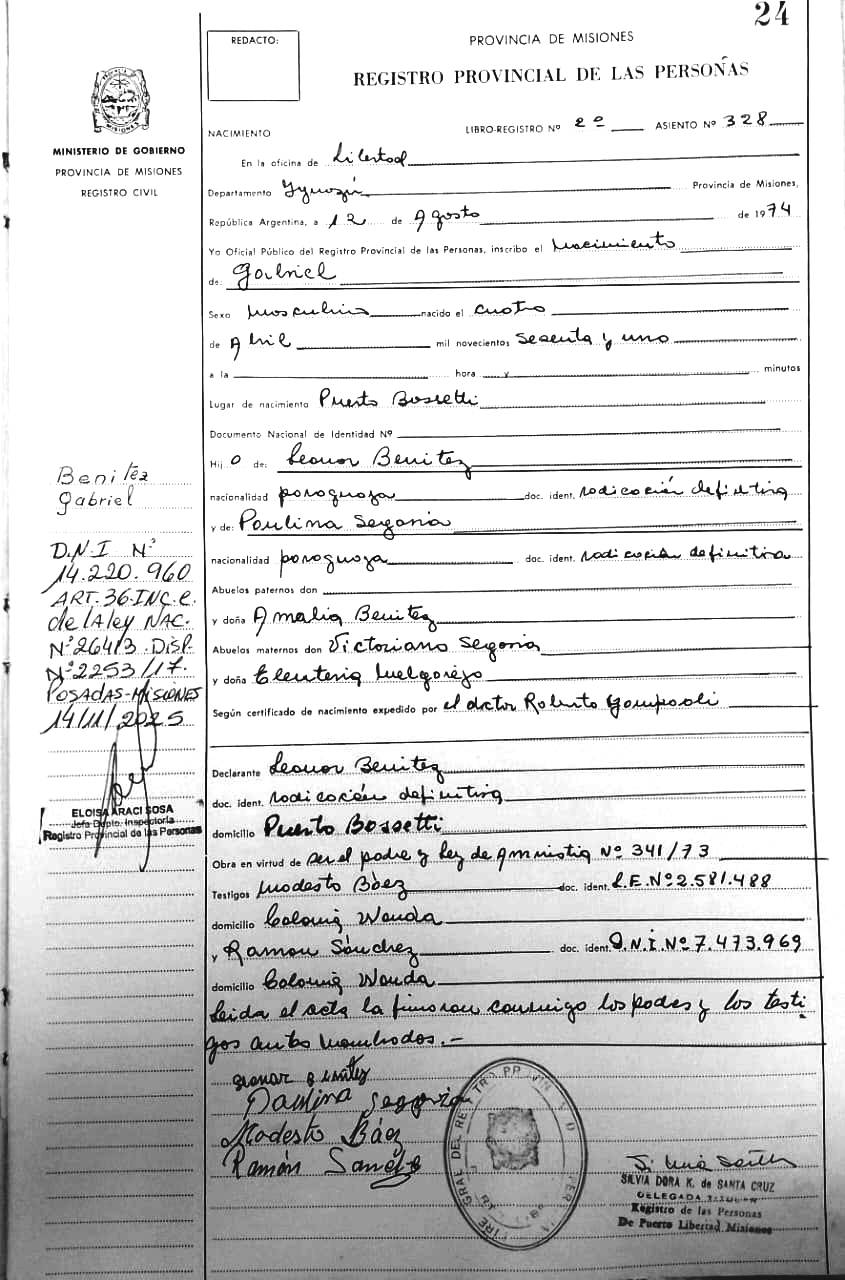 24
REDACTO:
PROVINCIA DE MISIONES
REGISTRO PROVINCIAL DE LAS PERSONAS
MISIONES
MINISTERIO DE GOBIERNO
PROVINCIA DE MISIONES
REGISTRO CIVIL
NACIMIENTO
LIBRO-REGISTRO Nº 2º ASIENTO Nº 328
En la oficina de Libertad
Departamento Yguazú Provincia de Misiones,
República Argentina, a 12 de Agosto de 1974
Yo Oficial Público del Registro Provincial de las Personas, inscribo el Nacimiento
de: Gabriel
Sexo Masculino nacido el cuatro
de Abril mil novecientos sesenta y uno
a la hora y minutos
Lugar de nacimiento Puerto Bossetti
Documento Nacional de Identidad Nº
Hijo de: Leonor Benitez
nacionalidad paraguaya doc. ident. radicación definitiva
y de: Paulina Segovia
nacionalidad paraguaya doc. ident. radicación definitiva
Abuelos paternos don
y doña Amalia Benitez
Abuelos maternos don Victoriano Segovia
y doña Eleuteria Melgarejo
Según certificado de nacimiento expedido por el doctor Roberto
Declarante Leonor Benitez
doc. ident. radicación definitiva
domicilio Puerto Bossetti
Obra en virtud de ser el padre y Ley de Amnistia Nº 341/73
Testigos Modesto Báez doc. ident. L.E.Nº 2.581.488
domicilio Colonia Wanda
y Ramon Sánchez doc. ident. D.N.I.Nº 7.473.969
domicilio Colonia Wanda
Leida el acta la firmaron conmigo los padres y los testi
gos antes nombrados.-
Benitez
Gabriel
D.N.I Nº
14.220.960
ART. 36-INC.c.
de lA ley NAC.
Nº 26413 DISP.
Nº 2253/17.
POSADAS-MISIONES
14/11/2025
ELOISA ARACI SOSA
Jefa Dpto. Inspectoría
Registro Provincial de las Personas
Leonor Benitez
Paulina Segovia
Modesto Báez
Ramón Sanche
SILVIA DORA K. de SANTA CRUZ
DELEGADA TITULAR
Registro de las Personas
De Puerto Libertad Misiones